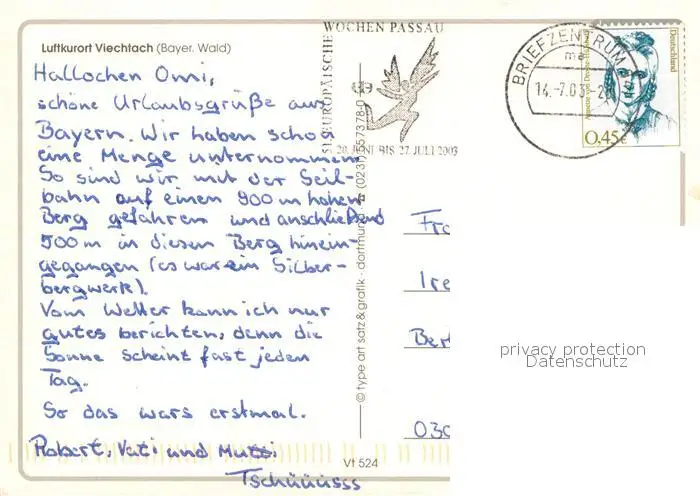 Luftkurort Viechtach (Bayer. Wald)
Hallochen Omi,
schöne Urlaubsgrüße aus
Bayern. Wir haben schon
eine Menge unternommen
So sind wir mit der Seil-
bahn auf einen 900 m hohen
Berg gefahren und anschließend
500 m in diesen Berg hinein-
gegangen (es war ein Silber-
bergwerk).
Vom Wetter kann ich nur
gutes berichten, denn die
Sonne scheint fast jeden
Tag.
So das wars erstmal.
Robert, Vati und Mutti
Tschüüüsss
Vt 524
© type art satz & grafik · dortmund · ☎ (0231) 557378-0
EUROPÄISCHE
WOCHEN PASSAU
20. JUNI BIS 27. JULI 2003
BRIEFZENTRUM
14.-7.03
Deutschland
0,45€
Fra
Ire
Ber
030
privacy protection
Datenschutz